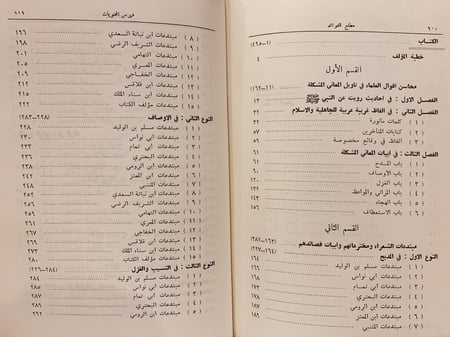 ٦٠٠ مطلع الفوائد
الكتاب (١-٤٦٥)
خطبة المؤلف ٤
القسم الأول
محاسن اقوال العلماء في تاويل المعاني المشكلة
الفصل الاول : في احاديث رويت عن النبي ﷺ ١٣
الفصل الثاني : في الفاظ غريبة عربية للجاهلية والاسلام ٣٢
( ١ ) كلمات ماثورة ٣٢
( ٢ ) كتابات المتأخرين ٥٧
( ٣ ) الفاظ في وقائع مخصوصة ٥٩
الفصل الثالث : في ابيات المعاني المشكلة ٦١
( ١ ) باب المدح ٦١
( ٢ ) باب الاوصاف
( ٣ ) باب الغزل
( ٤ ) باب المراثي والمواعظ
( ٥ ) باب الهجاء
( ٦ ) باب الاستعطاف ١٥٦
القسم الثاني
مبتدعات الشعراء ومخترعاتهم وابيات قصائدهم (١٦٣-٣٨٢)
النوع الاول : في المديح (١٦٤-٢٢٧)
( ١ ) مبتدعات مسلم بن الوليد
( ٢ ) مبتدعات ابي نواس ١٦٨
( ٣ ) مبتدعات ابي تمام ١٧٢
( ٤ ) مبتدعات البحتري ١٧٨
( ٥ ) مبتدعات ابن الرومي ١٨١
( ٦ ) مبتدعات ابن المعتز ١٨٦
( ٧ ) مبتدعات المتنبي ١٨٩
فهرس المحتويات
( ٨ ) مبتدعات ابن نباتة السعدي ١٩٦
( ٩ ) مبتدعات الشريف الرضي ١٩٨
( ١٠ ) مبتدعات التهامي ٢٠١
( ١١ ) مبتدعات المعري ٢٠٥
( ١٢ ) مبتدعات الخفاجي ٢٠٦
( ١٣ ) مبتدعات ابن قلاقس ٢١٢
( ١٤ ) مبتدعات ابن سناء الملك ٢١٥
( ١٥ ) مبتدعات مؤلف الكتاب ٢٢٢
النوع الثاني : في الاوصاف (٢٢٨-٢٨٣)
( ١ ) مبتدعات مسلم بن الوليد
( ٢ ) مبتدعات ابي نواس ٢٣٠
( ٣ ) مبتدعات ابي تمام ٢٣٣
( ٤ ) مبتدعات البحتري ٢٣٦
( ٥ ) مبتدعات ابن الرومي ٢٣٩
( ٦ ) مبتدعات ابن المعتز ٢٤٢
( ٧ ) مبتدعات المتنبي ٢٤٨
( ٨ ) مبتدعات ابن نباتة السعدي ٢٥٢
( ٩ ) مبتدعات الشريف الرضي ٢٥٦
( ١٠ ) مبتدعات التهامي ٢٥٩
( ١١ ) مبتدعات المعري ٢٦١
( ١٢ ) مبتدعات الخفاجي ٢٦٧
( ١٣ ) مبتدعات ابن قلاقس ٢٧٠
( ١٤ ) مبتدعات ابن سناء الملك ٢٧٣
( ١٥ ) مبتدعات مؤلف الكتاب ٢٨٠
النوع الثالث : في النسيب والغزل
( ١ ) مبتدعات مسلم بن الوليد ٢٨٤
( ٢ ) مبتدعات ابي نواس ٢٨٥
( ٣ ) مبتدعات ابي تمام ٢٨٧
( ٤ ) مبتدعات البحتري ٢٨٩
( ٥ ) مبتدعات ابن الرومي